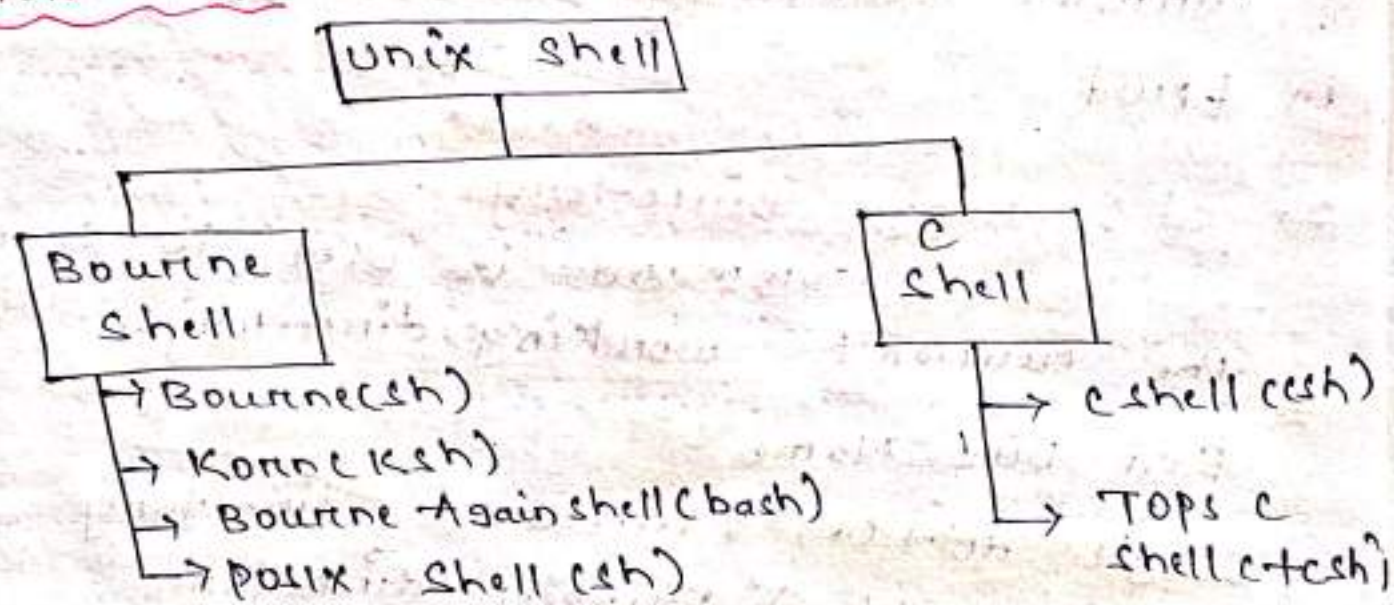 Unix Shell
Bourne
Shell
C
Shell
→ Bourne (sh)
→ Korn (ksh)
→ Bourne Again shell (bash)
→ POSIX Shell (sh)
→ C shell (csh)
→ TOPS C
shell (tcsh)